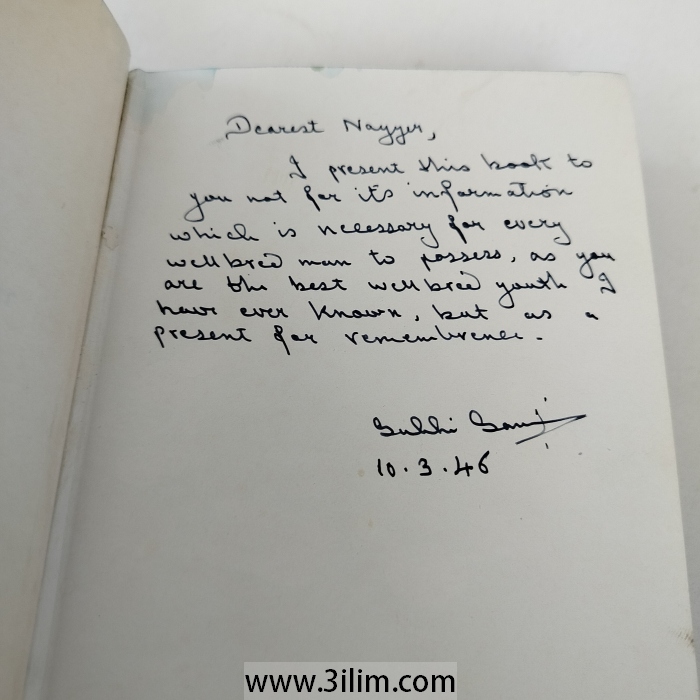 Dearest Nayyer,
I present this book to
you not for its information
which is necessary for every
wellbred man to possess, as you
are the best wellbred youth I
have ever known, but as a
present for remembrence.
10.3.46
www.3ilim.com